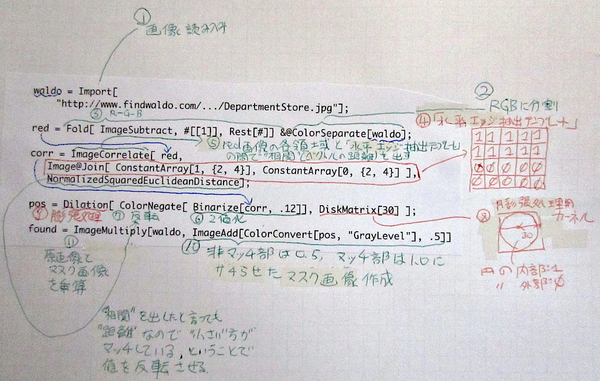 ①
画像読み込み
waldo = Import[
"http://www.findwaldo.com/.../DepartmentStore.jpg"];
②
RGBに分割
③ R-G-B
red = Fold[ ImageSubtract, #[[1]], Rest[#]] &@ColorSeparate[waldo];
④ 「水平エッジ抽出テンプレート」
⑤ red画像の各領域と「水平エッジ抽出テンプレ」
の間で"相関"(ベクトルの距離)を出す
corr = ImageCorrelate[ red,
Image@Join[ ConstantArray[1, {2, 4}], ConstantArray[0, {2, 4}] ],
NormalizedSquaredEuclideanDistance];
1 1 1 1 1
1 1 1 1 1
0 0 0 0 0
0 0 0 0 0
pos = Dilation[ ColorNegate[ Binarize[corr, .12]], DiskMatrix[30] ];
⑨ 膨張処理
⑦ 反転
⑥ 2値化
⑧ 膨張処理用
カーネル
30
円の内部:1
〃 外部:0
found = ImageMultiply[waldo, ImageAdd[ColorConvert[pos, "GrayLevel"], .5]]
⑩ 非マッチ部は0.5, マッチ部は1.0に
サチらせたマスク画像作成
⑪
原画像と
マスク画像
を乗算
"相関"を出したと言っても
"距離"なので"小さい"方が
マッチしている,ということで
値を反転させる